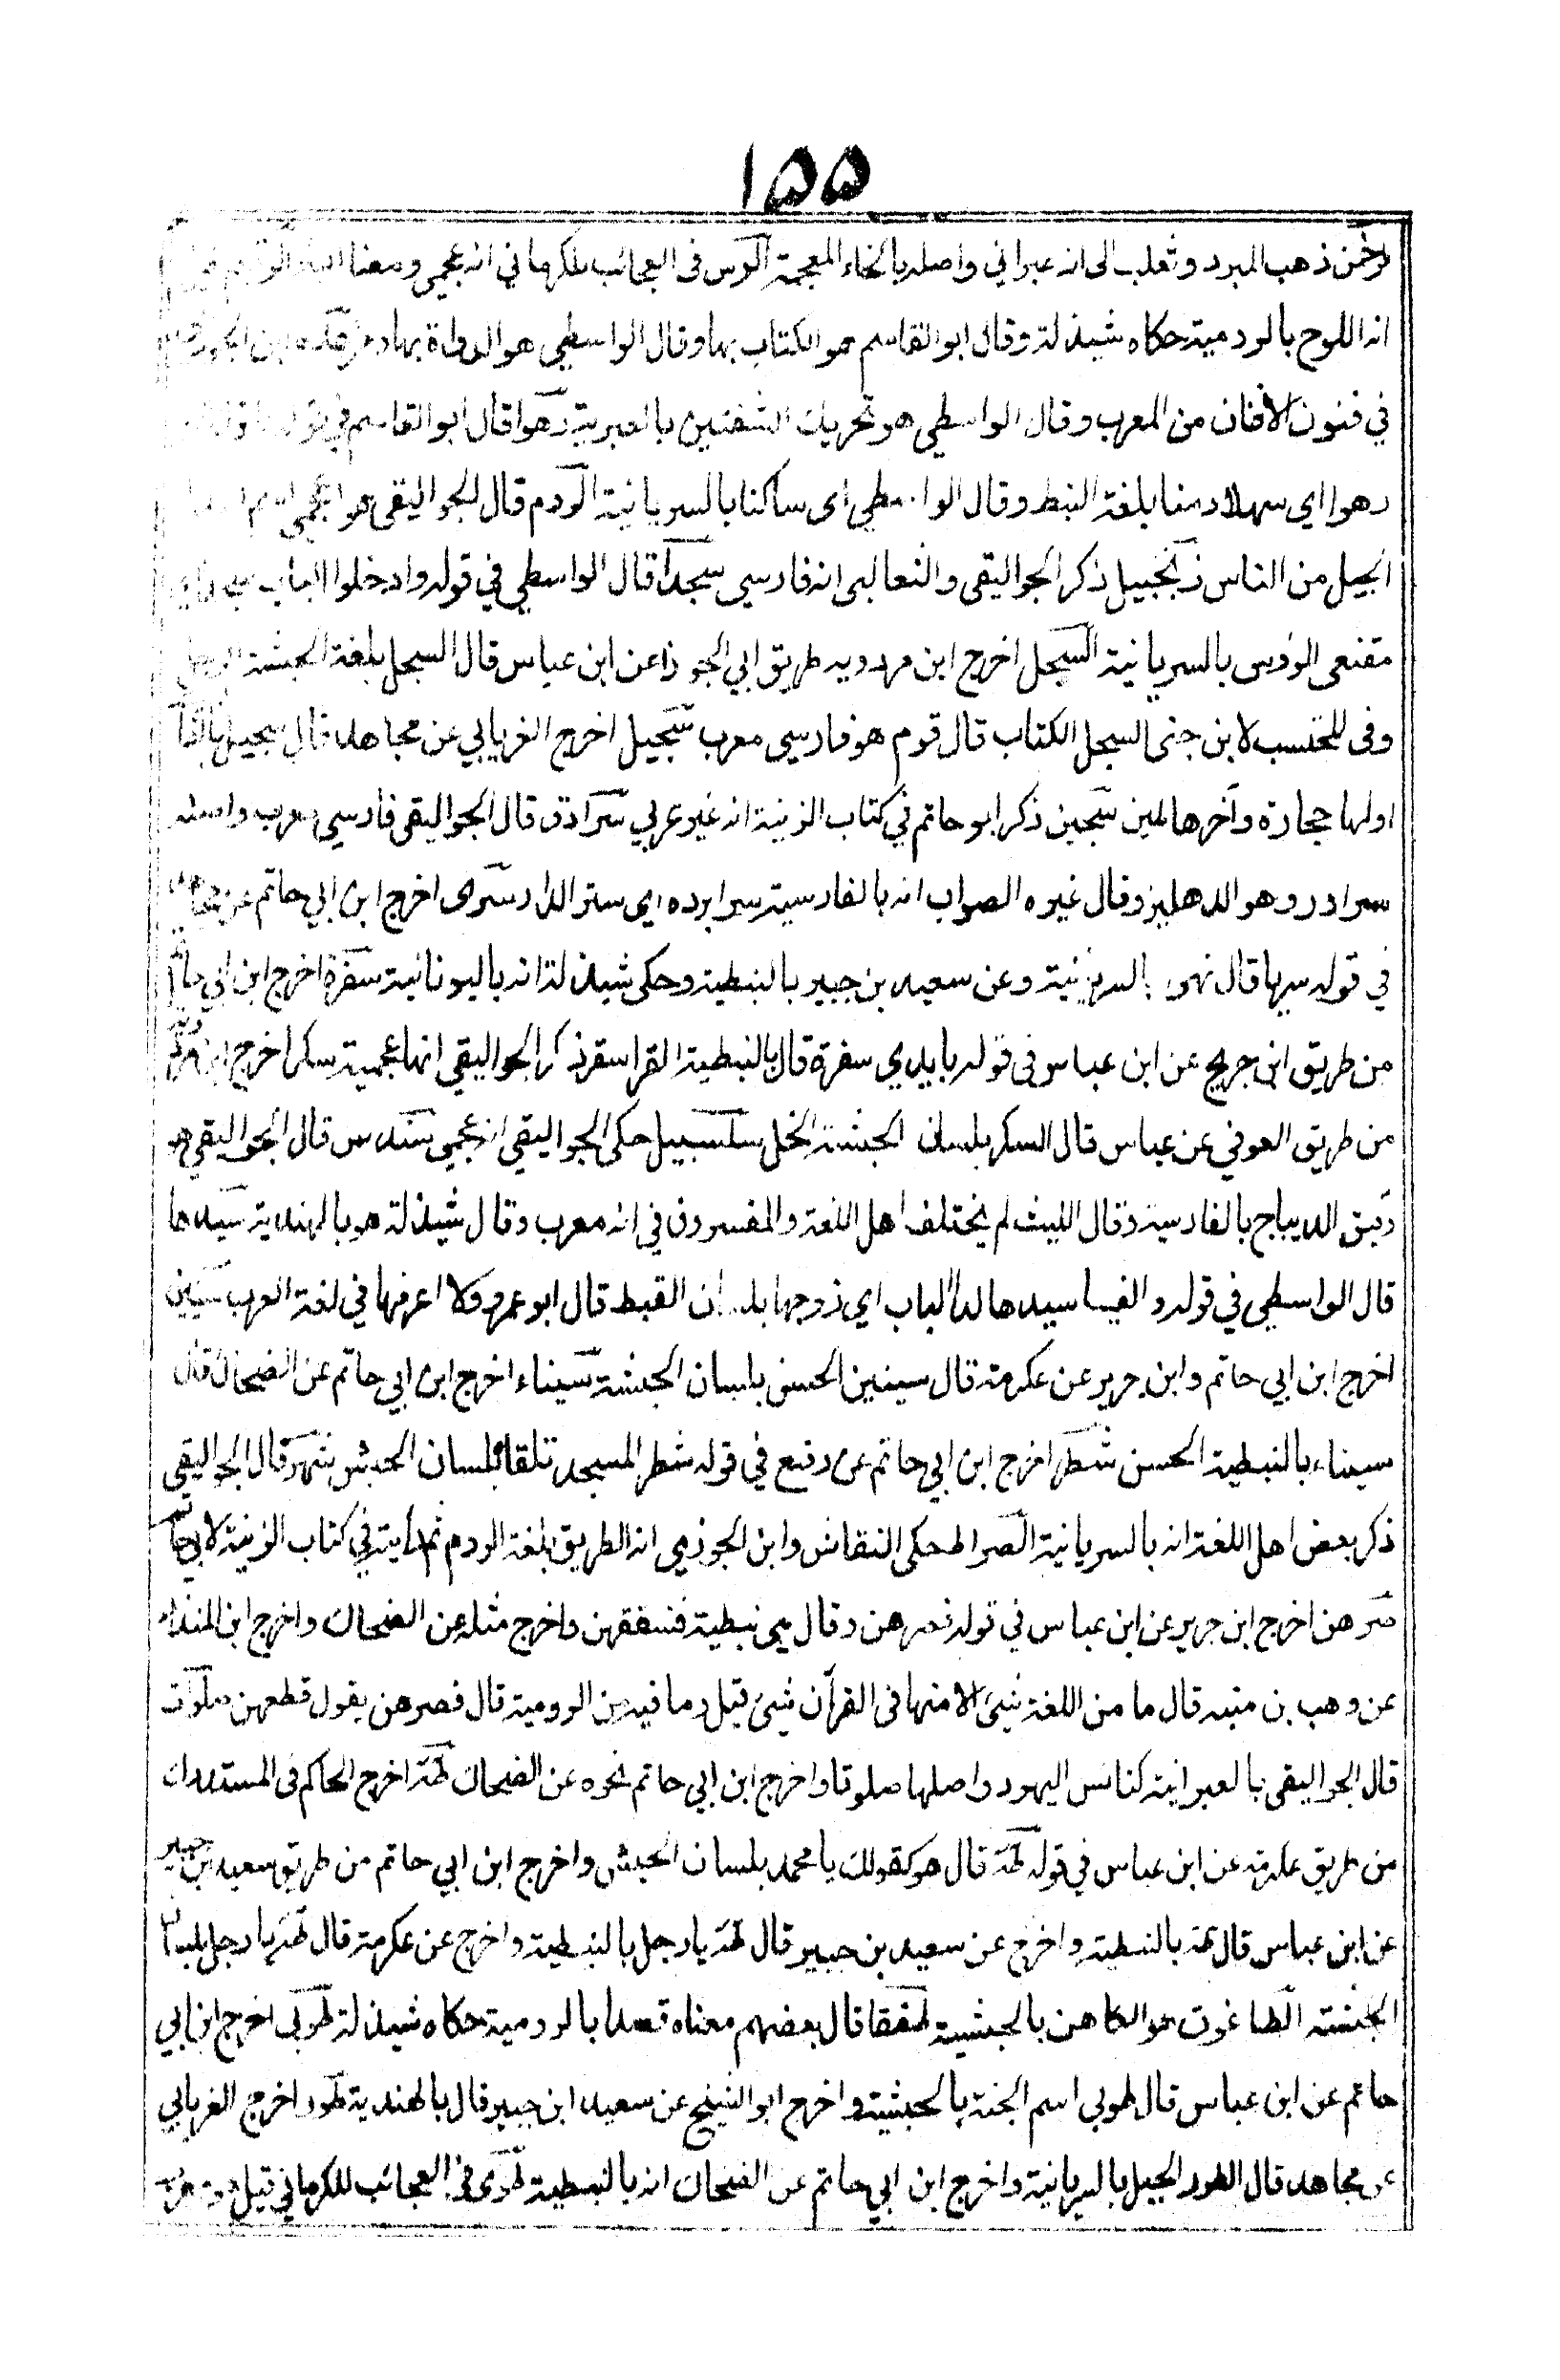 ١٥٥
لرحمن ذهب المبرد وثعلب الى انه عبراني واصله بالخاء المعجمة الرس فى العجائب للكرمانى انه عجمي ومعناه البئر الرقيم
انه اللوح بالرومية حكاه شيذلة وقال ابو القاسم هو الكتاب بها وقال الواسطي هو الدواة بها رمز عده ابن الجوزى
في فنون الافنان من المعرب وقال الواسطي هو تحريك الشفتين بالعبرية رهوا قال ابو القاسم في قوله
رهوا اي سهلا دمثا بلغة النبط وقال الواسطي اى ساكنا بالسريانية الروم قال الجواليقى هو اعجمي اسم
الجيل من الناس زنجبيل ذكر الجواليقى والثعالبى انه فارسي سجدا قال الواسطي في قوله وادخلوا الباب سجدا اي
مقنعى الرؤس بالسريانية السجل اخرج ابن مردويه طريق ابي الجوزا عن ابن عباس قال السجل بلغة الحبشة الرجل
وفى المحتسب لابن جنى السجل الكتاب قال قوم هو فارسي معرب سجيل اخرج الفريابي عن مجاهد قال سجيل بالفا
اولها حجارة وآخرها طين سجين ذكر ابو حاتم في كتاب الزينة انه غير عربي سرادق قال الجواليقى فارسي معرب واصله
سرادر وهو الدهليز وقال غيره الصواب انه بالفارسية سرابرده اي ستر الدار سرى اخرج ابن ابي حاتم عن مجاهد
في قوله سريا قال نهرا بالسريانية وعن سعيد بن جبير بالنبطية وحكى شيذلة انه باليونانية سفرة اخرج ابن ابي حاتم
من طريق ابن جريج عن ابن عباس فى قوله بايدي سفرة قال بالنبطية القرا سقر ذكر الجواليقي انها عجمية سكرا اخرج ابن مردويه
من طريق العوفي عن عباس قال السكر بلسان الحبشة الخل سلسبيل حكى الجواليقي انه عجمي سندس قال الجواليقي هو
رقيق الديباج بالفارسية وقال الليث لم يختلف اهل اللغة والمفسرون في انه معرب وقال شيذلة هو بالهندية سيدها
قال الواسطي في قوله والفيا سيدها لدا الباب اي زوجها بلسان القبط قال ابو عمر ولا اعرفها في لغة العرب سينين
اخرج ابن ابي حاتم وابن جرير عن عكرمة قال سينين الحسن بلسان الحبشة سيناء اخرج ابن ابي حاتم عن الضحاك قال
سيناء بالنبطية الحسن شطر اخرج ابن ابي حاتم عن رفيع في قوله شطر المسجد تلقا بلسان الحبش شهر قال الجواليقي
ذكر بعض اهل اللغة انه بالسريانية الصراط حكى النقاش وابن الجوزي انه الطريق بلغة الروم ثم رايته في كتاب الزينة لابي حاتم
صرهن اخرج ابن جرير عن ابن عباس في قوله فصرهن وقال هي نبطية فشققهن واخرج مثله عن الضحاك واخرج ابن المنذر
عن وهب بن منبه قال ما من اللغة شئ الا منها فى القرآن شئ قيل وما فيه من الرومية قال فصرهن يقول قطعهن صلوات
قال الجواليقى بالعبرانية كنائس اليهود واصلها صلوتا واخرج ابن ابي حاتم نحوه عن الضحاك طه اخرج الحاكم فى المستدرك
من طريق عكرمة عن ابن عباس في قوله طه قال هو كقولك يا محمد بلسان الحبش واخرج ابن ابي حاتم من طريق سعيد ابن جبير
عن ابن عباس قال طه بالنبطية واخرج عن سعيد بن جبير قال طه يا رجل بالنبطية واخرج عن عكرمة قال طه يا رجل بلسان
الحبشة الطاغوت هو الكاهن بالحبشية طفقا قال بعضهم معناه قصدا بالرومية حكاه شيذلة طوبى اخرج ابن ابي
حاتم عن ابن عباس قال طوبي اسم الجنة بالحبشية واخرج ابو الشيخ عن سعيد ابن جبير قال بالهندية طور اخرج الفريابي
عن مجاهد قال الطور الجبل بالسريانية واخرج ابن ابي حاتم عن الضحاك انه بالنبطية طوى فى العجائب للكرماني قيل هو معرب